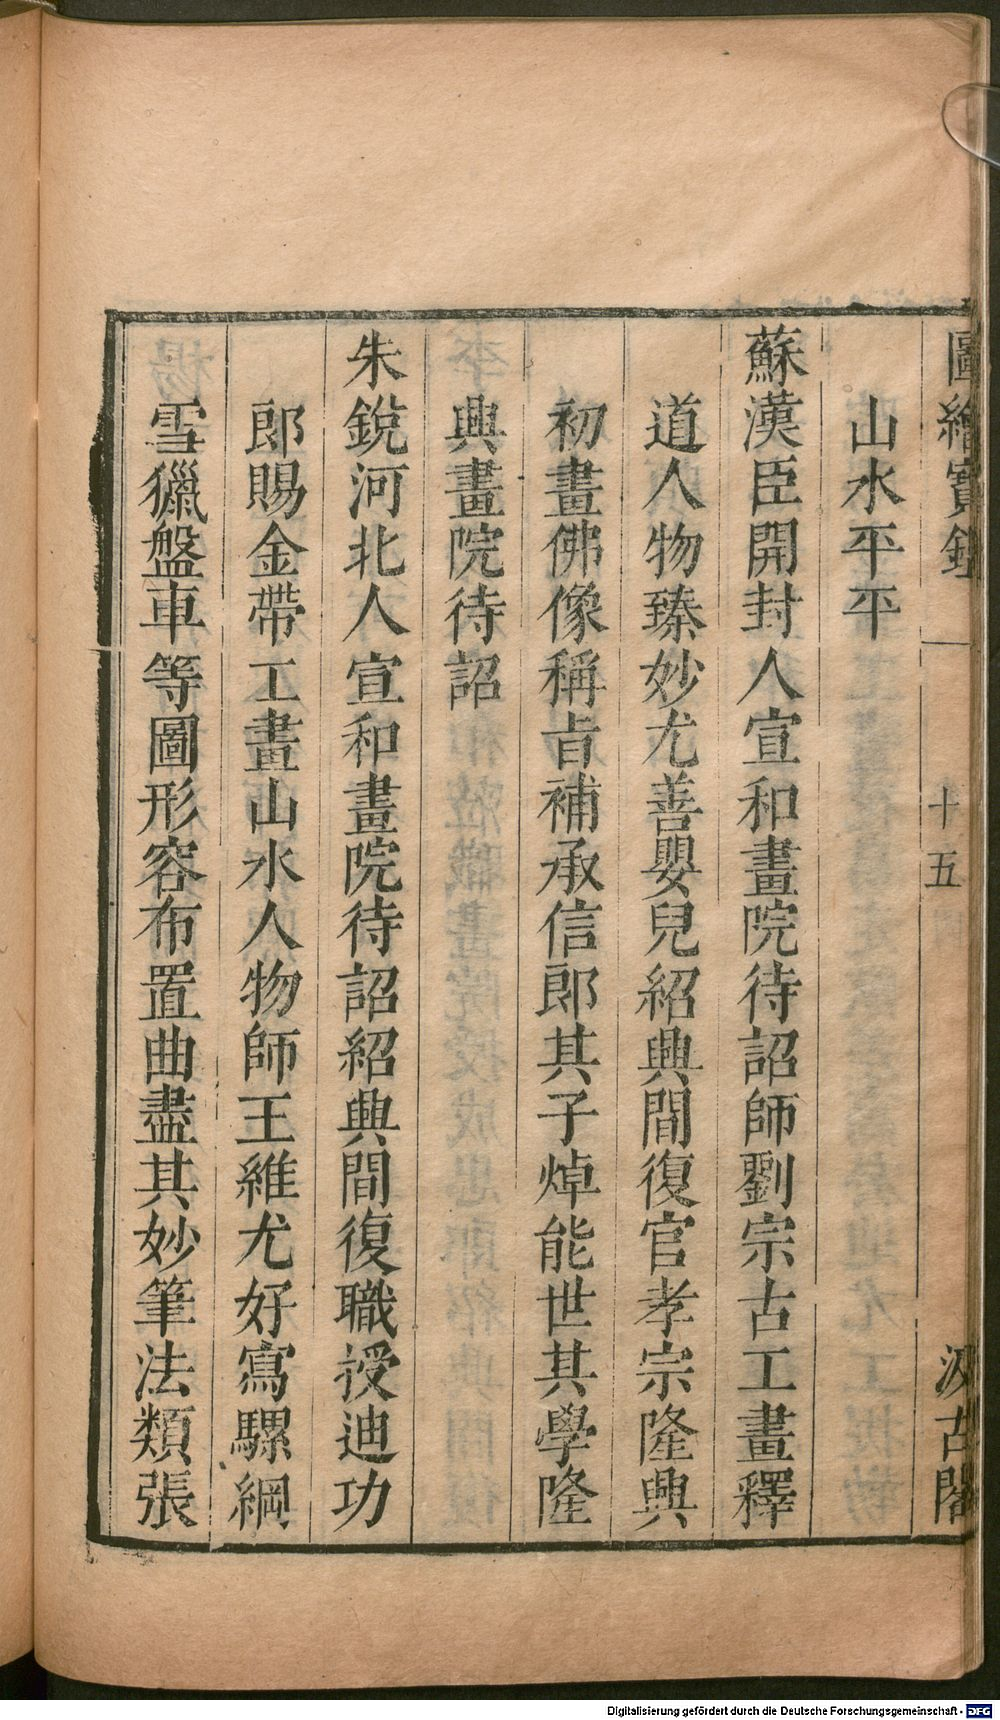 圖繪寶鑑
十五
汲古閣
山水平平
蘇漢臣開封人宣和畫院待詔師劉宗古工畫釋
道人物臻妙尤善嬰兒紹興間復官孝宗隆興
初畫佛像稱旨補承信郎其子焯能世其學隆
興畫院待詔
朱銳河北人宣和畫院待詔紹興間復職授迪功
郎賜金帶工畫山水人物師王維尤好寫騾綱
雪獵盤車等圖形容布置曲盡其妙筆法類張
Digitalisierung gefördert durch die Deutsche Forschungsgemeinschaft - DFG